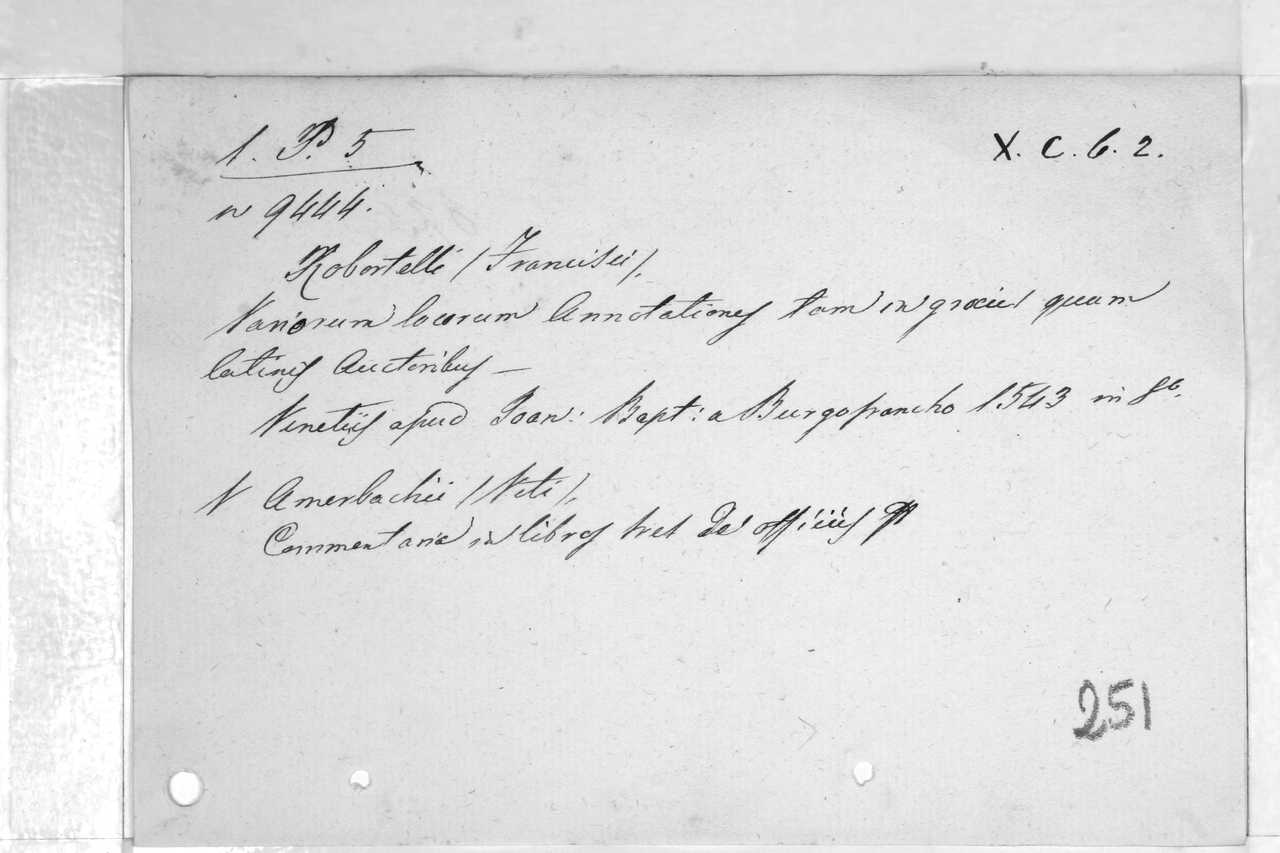 1. P. 5
X. C. 6. 2.
n 9444.
Robortelli (Francisci).
Variorum locorum Annotationes tam in græcis quam
latinis Auctoribus —
Venetiis apud Joan: Bapt: a Burgofrancho 1543 in 8º.
V Amerbachii (Viti).
Commentaria in libros tres De officiis
251